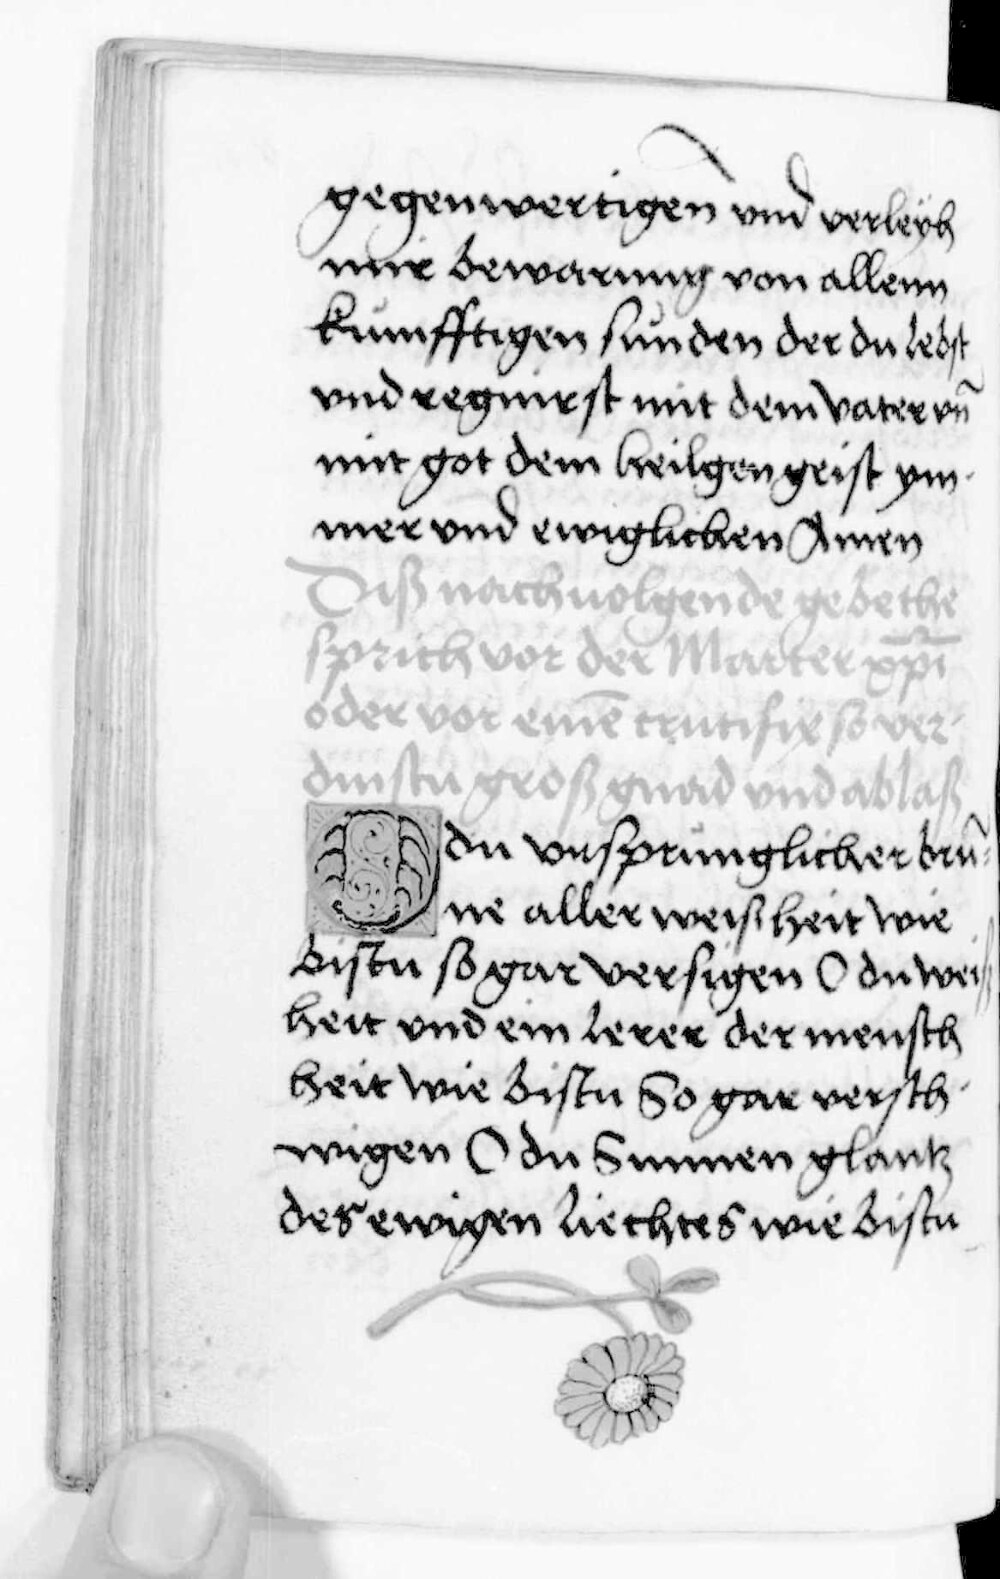 gegenwertigen̄ vnd verleyh
mir bewarung von allenn
kůnfftigen sůnden der du lebst
vnd regnirst mit dem vater vn̄
mit got dem heilgen geist ym-
mer vnd ewiglichen Amen
Diß nachuolgende gebethe
sprich vor der Marter xp̄i
oder vor einē crucifix so ver-
dinstu groß gnad vnd ablaß
O du vrsprůnglicher brū-
ne aller weißheit wie
bistu so gar versigen O du weiß
heit vnd ein lerer der mensch
heit wie bistu So gar versch-
wigen O du Sunnen glantz
des ewigen liechtes wie bistu